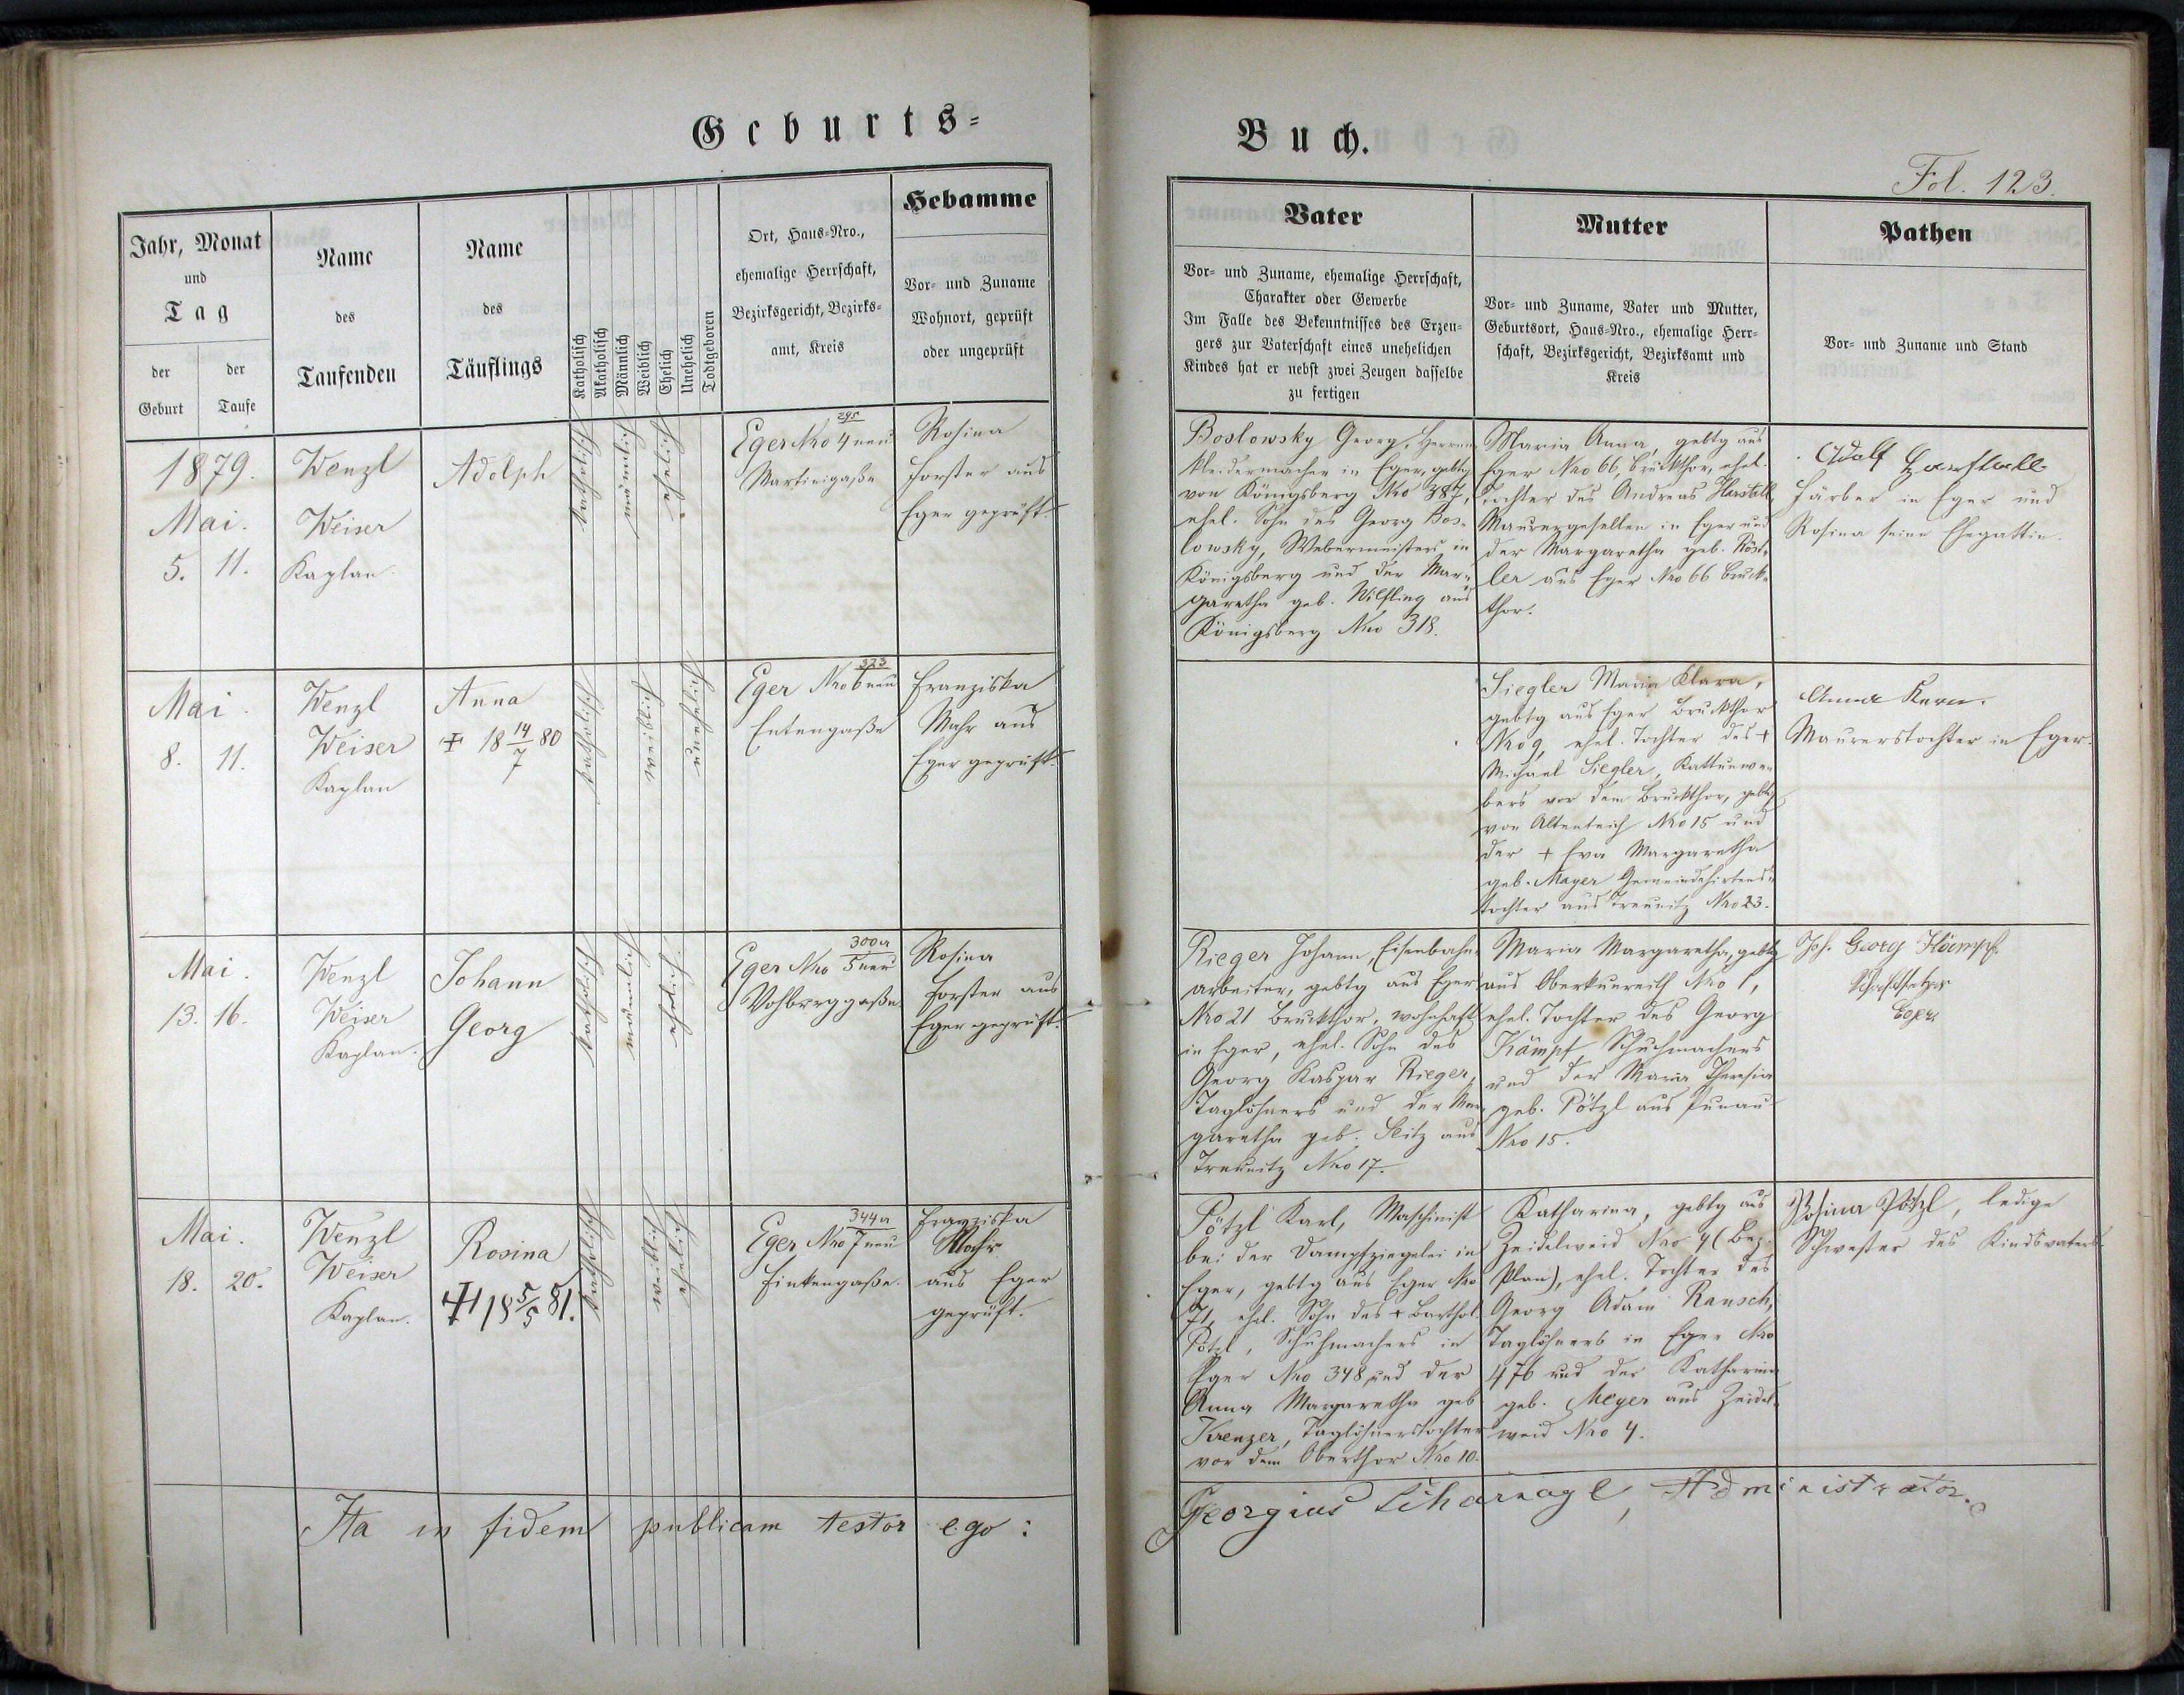 Geburts-
Buch.
Fol. 123.
Jahr, Monat
und
Tag
der
Geburt
der
Taufe
Name
des
Taufenden
Name
des
Täuflings
Katholisch
Akatholisch
Männlich
Weiblich
Ehelich
Unehelich
Todtgeboren
Ort, Haus-Nro.,
ehemalige Herrschaft,
Bezirksgericht, Bezirks-
amt, Kreis
Hebamme
Vor- und Zuname
Wohnort, geprüft
oder ungeprüft
Vater
Vor- und Zuname, ehemalige Herrschaft,
Charakter oder Gewerbe
Im Falle des Bekenntnisses des Erzeu-
gers zur Vaterschaft eines unehelichen
Kindes hat er nebst zwei Zeugen dasselbe
zu fertigen
Mutter
Vor- und Zuname, Vater und Mutter,
Geburtsort, Haus-Nro., ehemalige Herr-
schaft, Bezirksgericht, Bezirksamt und
Kreis
Pathen
Vor- und Zuname und Stand
1879.
Mai.
5. 11.
Wenzl
Weiser
Kaplan.
Adolph
katholisch
männlich
ehelich
295
Eger Nro 4 neu
Martinigaße
Rosina
Forster aus
Eger geprüft.
Boslowsky Georg, Herrn-
kleidermacher in Eger, gebtg
von Königsberg Nro 387,
ehel. Sohn des Georg Bos-
lowsky, Webermeisters in
Königsberg und der Mar-
garetha geb. Wilfling aus
Königsberg Nro 318.
Maria Anna, gebtg aus
Eger Nro 66, Bruckthor, ehel.
Tochter des Andreas Harstall
Maurergesellen in Eger und
der Margaretha geb. Röst-
ler aus Eger Nro 66 Bruck-
thor.
Adolf
Färber in Eger und
Rosina seine Ehegattin.
Mai.
8. 11.
Wenzl
Weiser
Kaplan
Anna
† 18 14/7 80
katholisch
weiblich
unehelich
323
Eger Nro 6 neu
Entengaße
Franziska
Mahr aus
Eger geprüft.
Siegler Maria Klara,
gebtg aus Eger Bruckthor
Nro 9, ehel. Tochter des †
Michael Siegler, Kattunwe-
bers vor dem Bruckthor, gebtg
von Altenteich Nro 15 und
der † Eva Margaretha
geb. Mayer Gemeindehirtens-
tochter aus Treunitz Nro 23.
Anna Kern.
Maurerstochter in Eger.
Mai.
13. 16.
Wenzl
Weiser
Kaplan.
Johann
Georg
katholisch
männlich
ehelich.
300a
Eger Nro 5 neu
Vohburggaße
Rosina
Forster aus
Eger geprüft.
Rieger Johann, Eisenbahn-
arbeiter, gebtg aus Eger
Nro 21 Bruckthor, wohnhaft
in Eger, ehel. Sohn des
Georg Kaspar Rieger,
Taglöhners und der Mar-
garetha geb. Seitz aus
Treunitz Nro 17.
Maria Margaretha, gebtg
aus Oberkunreith Nro 1,
ehel. Tochter des Georg
Kämpf, Schuhmachers
und der Maria Theresia
geb. Pötzl aus
Nro 15.
Joh. Georg Kämpf
Schriftsetzer
Eger
Mai.
18. 20.
Wenzl
Weiser
Kaplan.
Rosina
† 18 5/5 81.
katholisch
weiblich
ehelich
344a
Eger Nro 7 neu
Finkengaße.
Franziska
Mahr
aus Eger
geprüft.
Pötzl Karl, Maschinist
bei der Dampfziegelei in
Eger, gebtg aus Eger Nro
71, ehel. Sohn des † Barthol.
Pötzl, Schuhmachers in
Eger Nro 348 und der
Anna Margaretha geb
Krenzer, Taglöhnerstochter
vor dem Oberthor Nro 10.
Katharina, gebtg aus
Zeidelweid Nro 4 (Bez.
Plan), ehel. Tochter des
Georg Adam Rausch,
Taglöhners in Eger Nro
476 und der Katharina
geb. Meyer aus Zeidel-
weid Nro 4.
Rosina Pötzl, ledige
Schwester des Kindsvaters.
Ita in fidem publicam testor ego:
Georgius Scharnagl, Administrator.